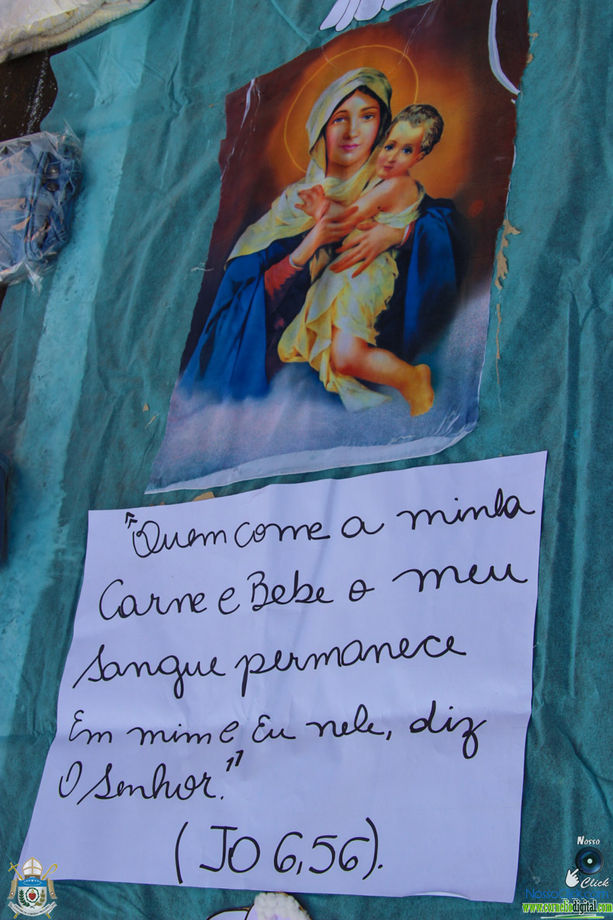 "Quem come a minha
Carne e Bebe o meu
Sangue permanece
Em mim e Eu nele, diz
O Senhor."
(JO 6,56).
Nosso
Click